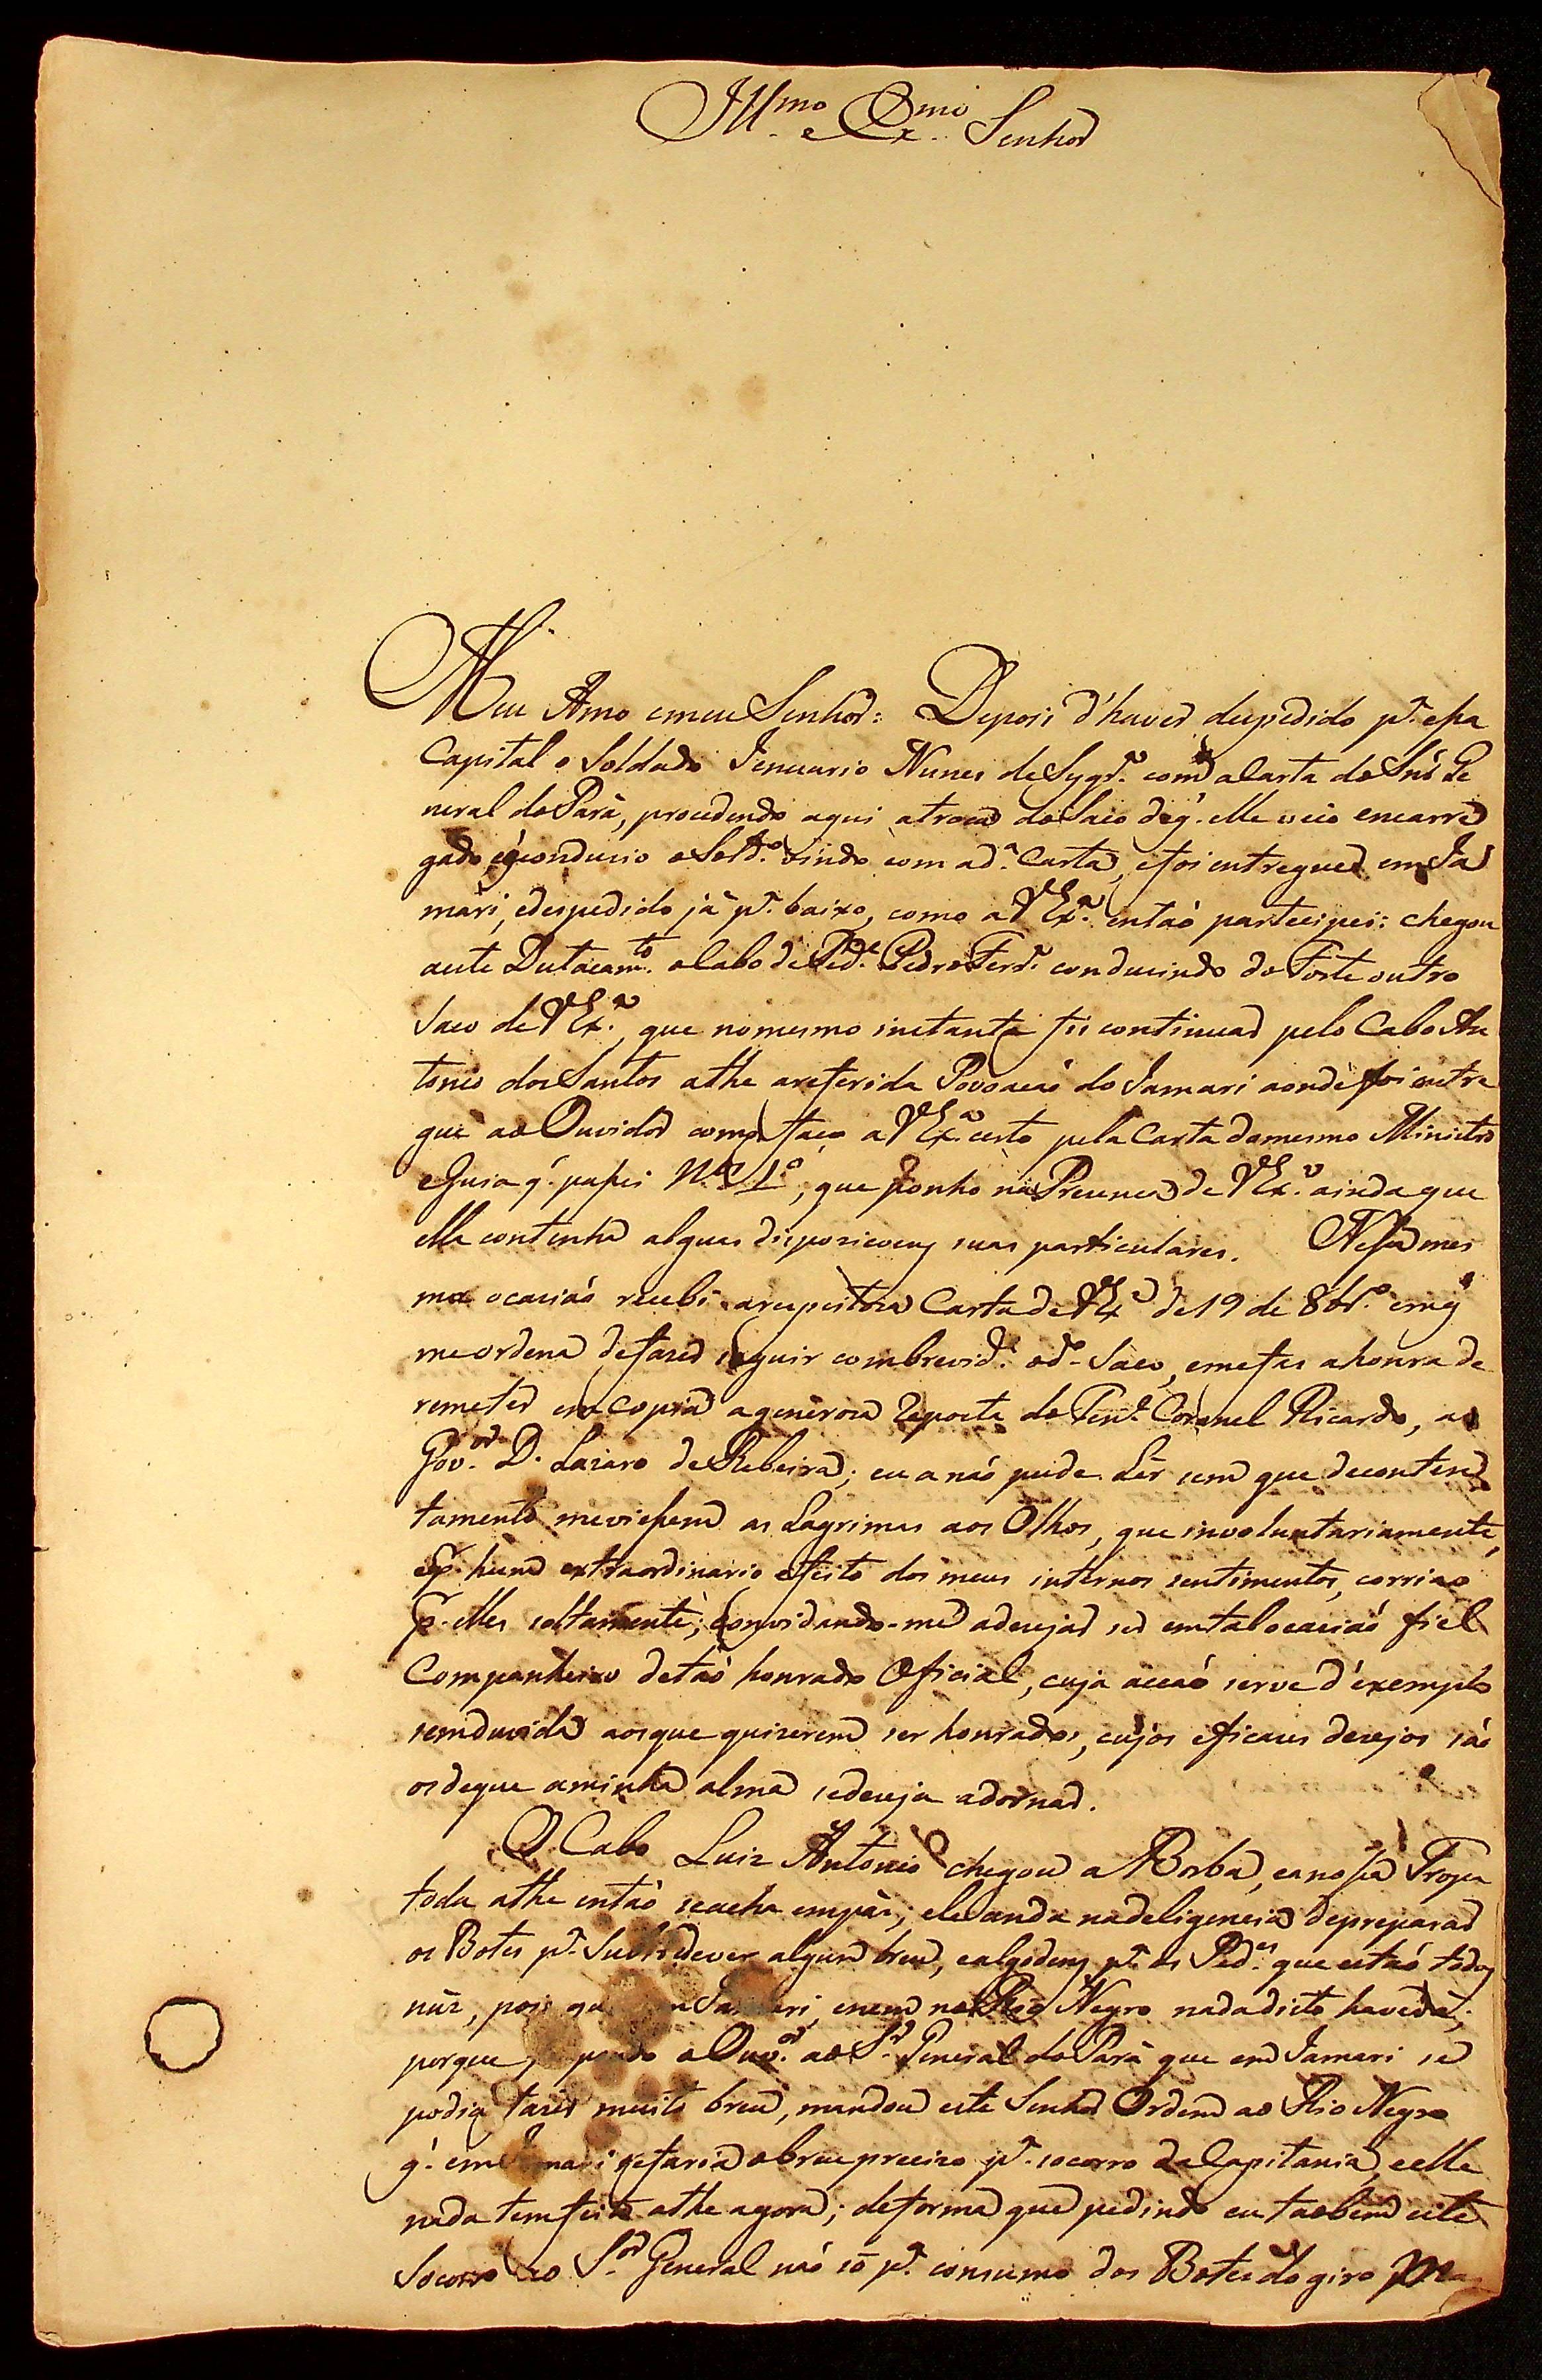 Ill.mo e Ex.mo Senhor
Meu Amo emeu Senhor: Depois d'haver despedido p.ª essa
Capital o Soldado Jenuario Nunes de Syqr.ª com a Carta do Snr̃ Ge
neral do Pará, procedendo aqui atroca do Saco deq̃. elle veio encarre
gado, q̃conduzio o Sold.º vindo com ad.ª Carta, efoi entregue em Ja
mari, edespedido já p.ª baixo, como a VEx.ª entaó partecipei: chegou
aeste Destacam.to oCabo de Ped.e Pedro Ferr.ª conduzindo do Forte outro
Saco de VEx.ª, que nomesmo instante fis continuar pelo Cabo An
tonio dos Santos athe areferida Povoacaó do Jamari aonde foi entre
gue ao Ouvidor como faco a VEx.ª certo pela Carta domesmo Ministro
eGuia q̃. passei N.º 1.º, que ponho na Prezenca de VEx.ª ainda que
ella contenha alguas dispozicoens suas particulares. Nessa mes
ma ocaziaó recebi arespeitoza Carta de VEx.ª de 19 de 8br.º emq̃
meordena defazer seguir combrevid.e od.º Saco, emefas ahonra de
remeter em copia agenéroza Reposta do Ten.e Coronel Ricardo, ao
Gov.or D. Lazaro de Ribeira; eu a naó pude Lêr sem que deconten
tamento meviessem as Lagrimas aos Olhos, que involuntariamente,
ep. hum extraordinario efeito dos meus internos sentimentos, corriaõ
p. elles soltamente; convidando-me adezejar ser emtal ocaziaó fiel
Companheiro detaó honrado Oficial, cuja accaó serve d'éxemplo
semduvida aosque quizerem ser honrados, cujos eficazes dezejos saó
osdeque aminha alma sedezeja adornar.
O Cabo Luiz Antonio chegou a Borba, eanossa Tropa
toda athe entaó seacha empàz; ele anda nadeligencia depreparar
os Botes p.ª Subir dever algum breu, ealgodens p.ª os Ped.es que estaó todos
nûz, pois que em Jamari, enem no Rio Negro nadadisto haverá;
porque pondo o Ouv.or ao S.r General do Pará que em Jamari se
podia fazer muito breu, mandou este Senhor Ordem ao Rio Negro
q̃. em Jamari sefaria obreu precizo p.ª socorro da Capitania, eelle
nada temfeito athe agora; deforma que pedindo eu taobem este
Socorro ao S.or General naó só p.ª consumo dos Botes do giro Ma